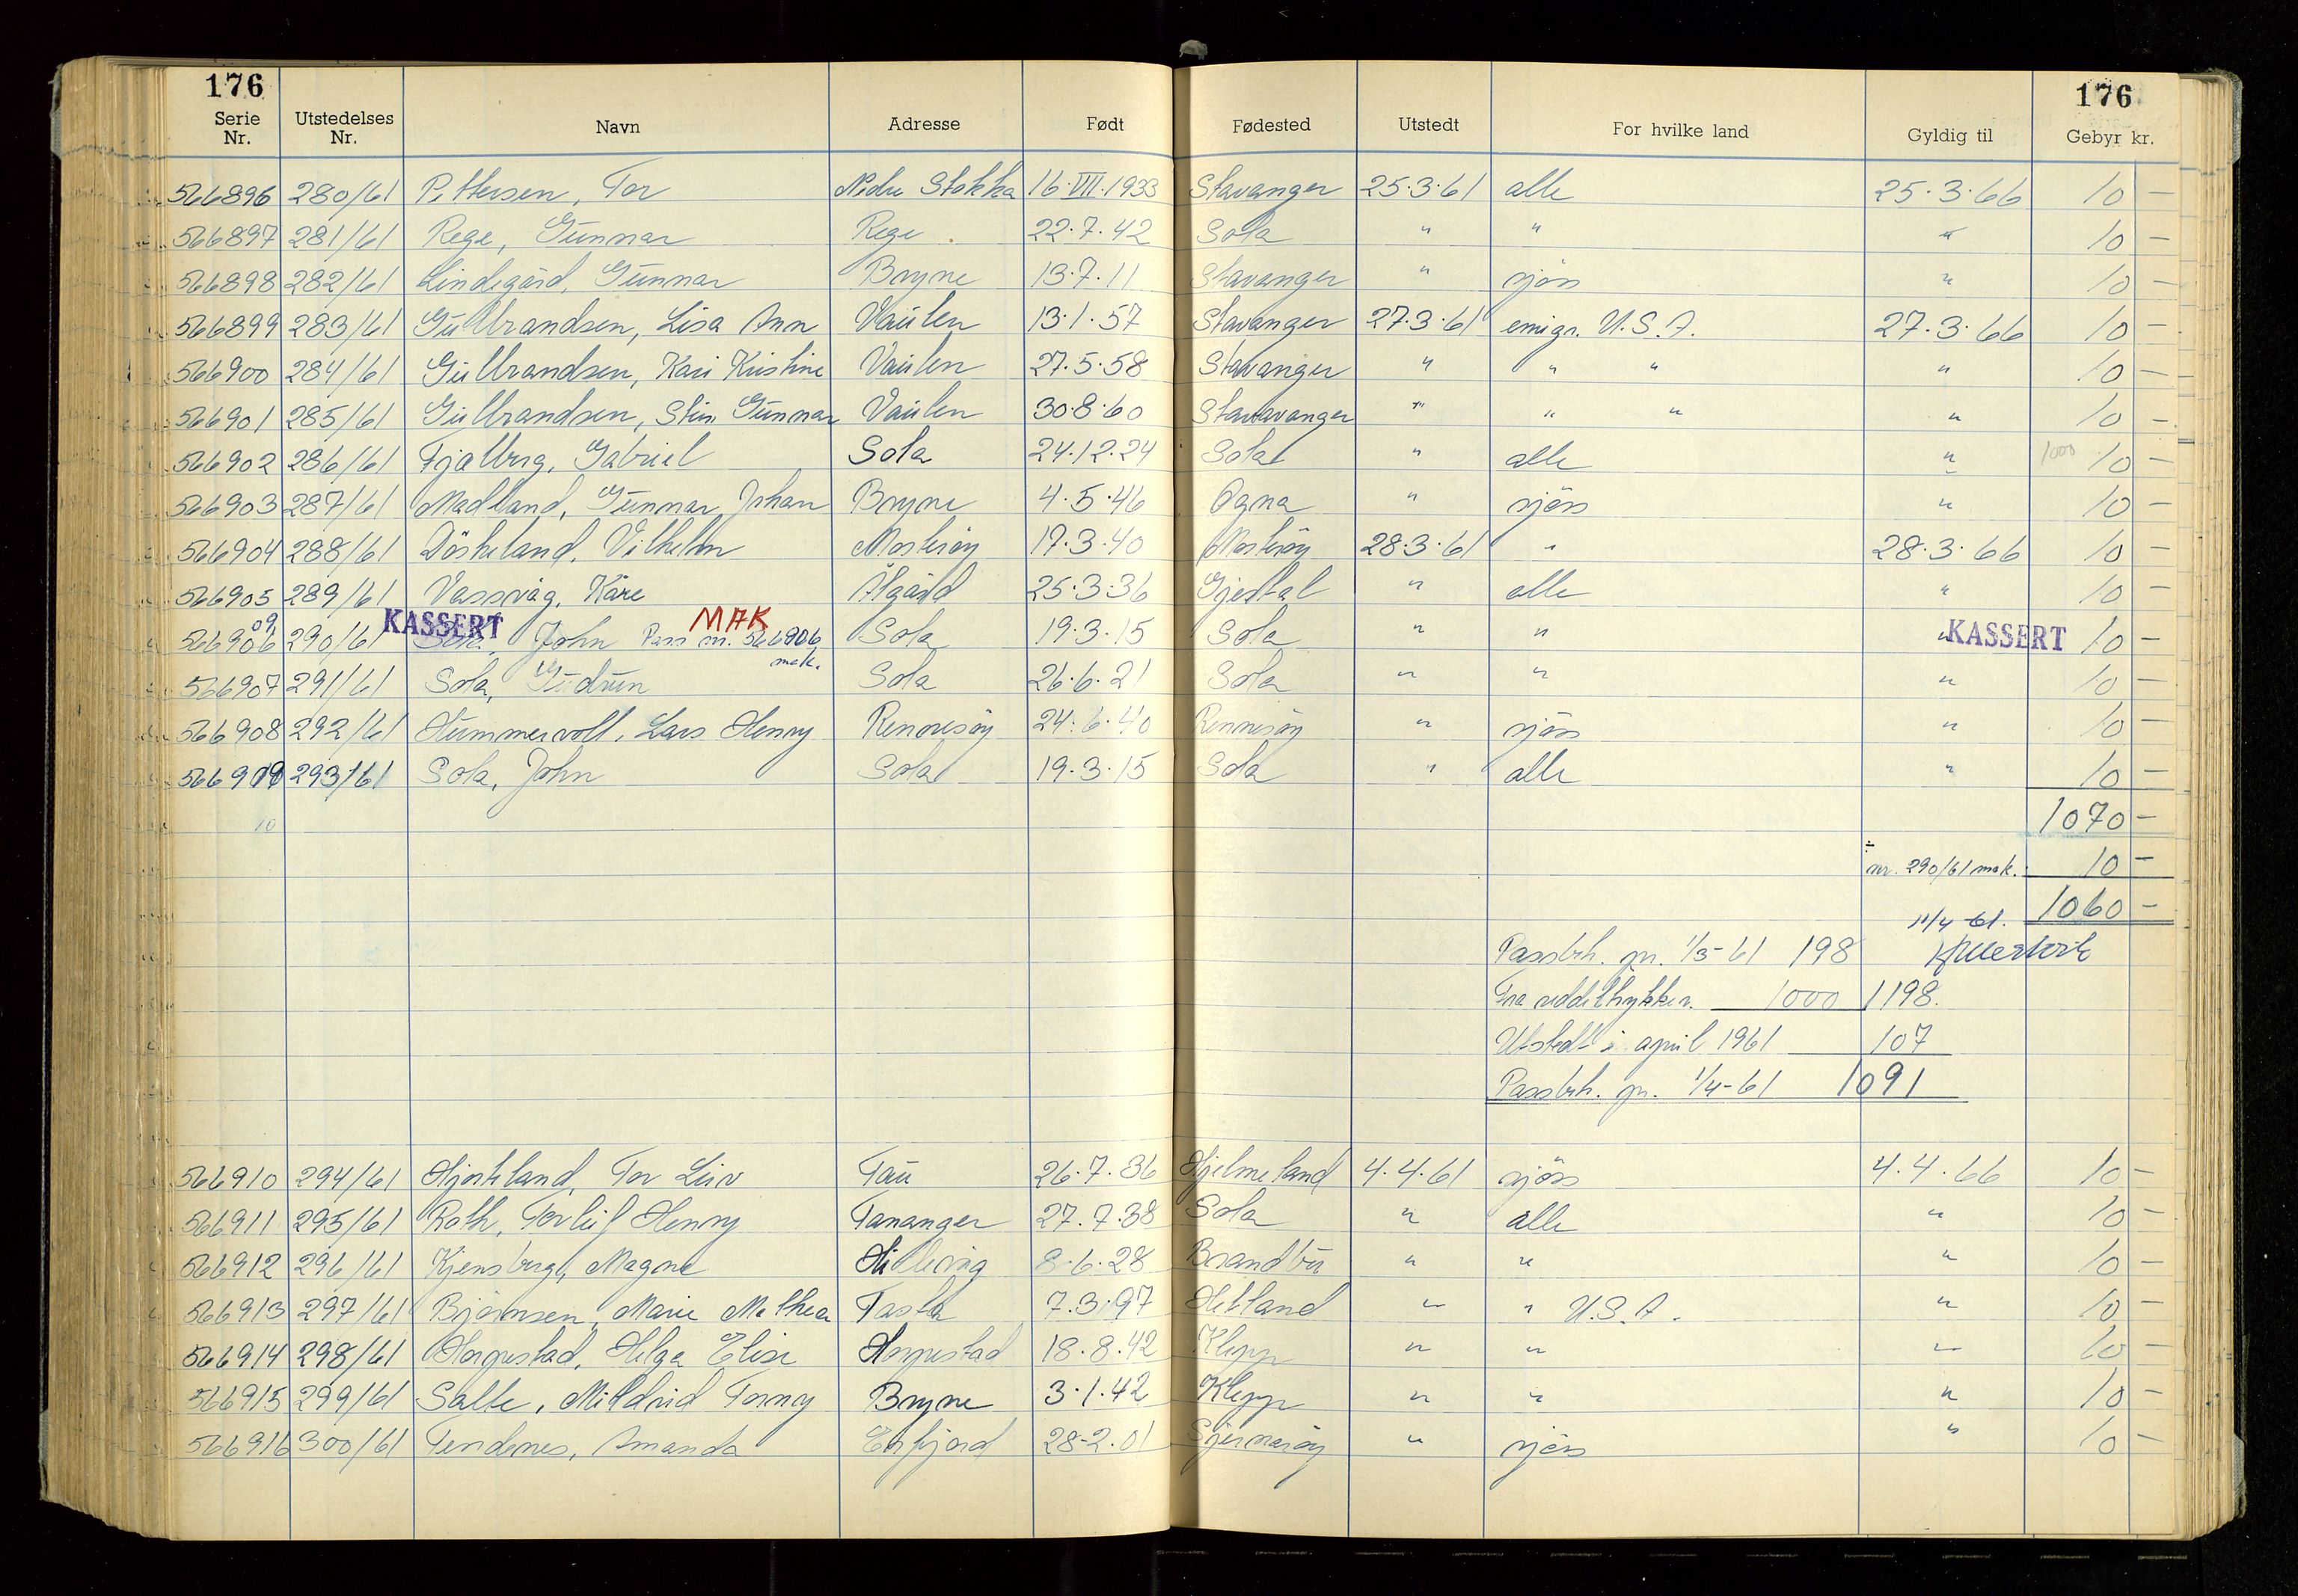 176 176
Serie Nr. Utstedelses Nr. Navn Adresse Født Fødested Utstedt For hvilke land Gyldig til Gebyr kr.
566896 280/61 Pettersen, Tor Nedre Stokka 16.VII.1933 Stavanger 25.3.61 alle 25.3.66 10 —
566897 281/61 Rege, Gunnar Rege 22.7.42 Sola " " " 10 —
566898 282/61 Lindegård, Gunnar Bryne 13.7.11 Stavanger " sjøss " 10 —
566899 283/61 Gullbrandsen, Lisa Ann Vaulen 13.1.57 Stavanger 27.3.61 emigr. U.S.A. 27.3.66 10 —
566900 284/61 Gullbrandsen, Kari Kristine Vaulen 27.5.58 Stavanger " " " " 10 —
566901 285/61 Gullbrandsen, Stein Gunnar Vaulen 30.8.60 Stavavanger " " " " 10 —
566902 286/61 Fjalberg, Gabriel Sola 24.12.24 Sola " alle " 1000 10 —
566903 287/61 Madland, Gunnar Johan Bryne 4.5.46 Ogna " sjøss " 10 —
566904 288/61 Döskeland, Vilhelm Mosterøy 17.3.40 Mosterøy 28.3.61 " 28.3.66 10 —
566905 289/61 Vassvåg, Kåre Ålgård 25.3.36 Gjestal " alle " 10 —
09 KASSERT MAK
566906 290/61 John Pass nr. 566906 mak. Sola 19.3.15 Sola " " " KASSERT 10 —
566907 291/61 Sola, Gudrun Sola 26.6.21 Sola " " " 10 —
566908 292/61 Hummervoll, Lars Henry Rennesøy 24.6.40 Rennesøy " sjøss " 10 —
566909 293/61 Sola, John Sola 19.3.15 Sola " alle " 10 —
10 1070 —
÷ nr. 290/61 mak. 10 —
11/4-61. 1060 —
Passbeh. pr. 1/3-61 198
1000 1198.
Utstedt i april 1961 107
Passbeh. pr. 1/4-61 1091
566910 294/61 Hjorteland, Tor Leiv Tau 26.7.36 Hjelmeland 4.4.61 sjøss 4.4.66 10 —
566911 295/61 Roth, Torleif Henry Tananger 27.7.38 Sola " alle " 10 —
566912 296/61 Kjensberg, Magne Hillevåg 8.6.28 Brandbu " " " 10 —
566913 297/61 Bjørnsen, Marie Mathea Tasta 7.3.97 Hetland " " U.S.A. " 10 —
566914 298/61 Horpestad, Helga Elise Horpestad 18.8.42 Klepp " " " 10 —
566915 299/61 Salte, Mildrid Torny Bryne 3.1.42 Klepp " " " 10 —
566916 300/61 Tendenes, Amanda Erfjord 28-2.01 Sjernarøy " sjøss " 10 —